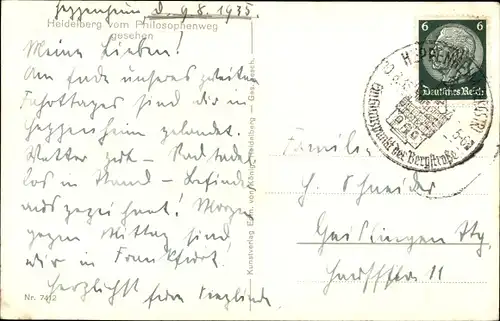 Heppenheim, d. 9.8.1935.
Heidelberg vom Philosophenweg
gesehen
Meine Lieben!
Am Ende unseres zweiten
Fahrttages sind wir in
Heppenheim gelandet.
Wetter gut – Rad tadel
los in Stand – Befinden
ausgezeichnet! Morgen
gegen Mittag sind
wir in Frankfurt.
Herzlichst
Nr. 7412
Kunstverlag Edm. von König, Heidelberg Ges. gesch.
6
Deutsches Reich
der Bergstraße
Familie
H. Schneider
Geislingen Stg
11